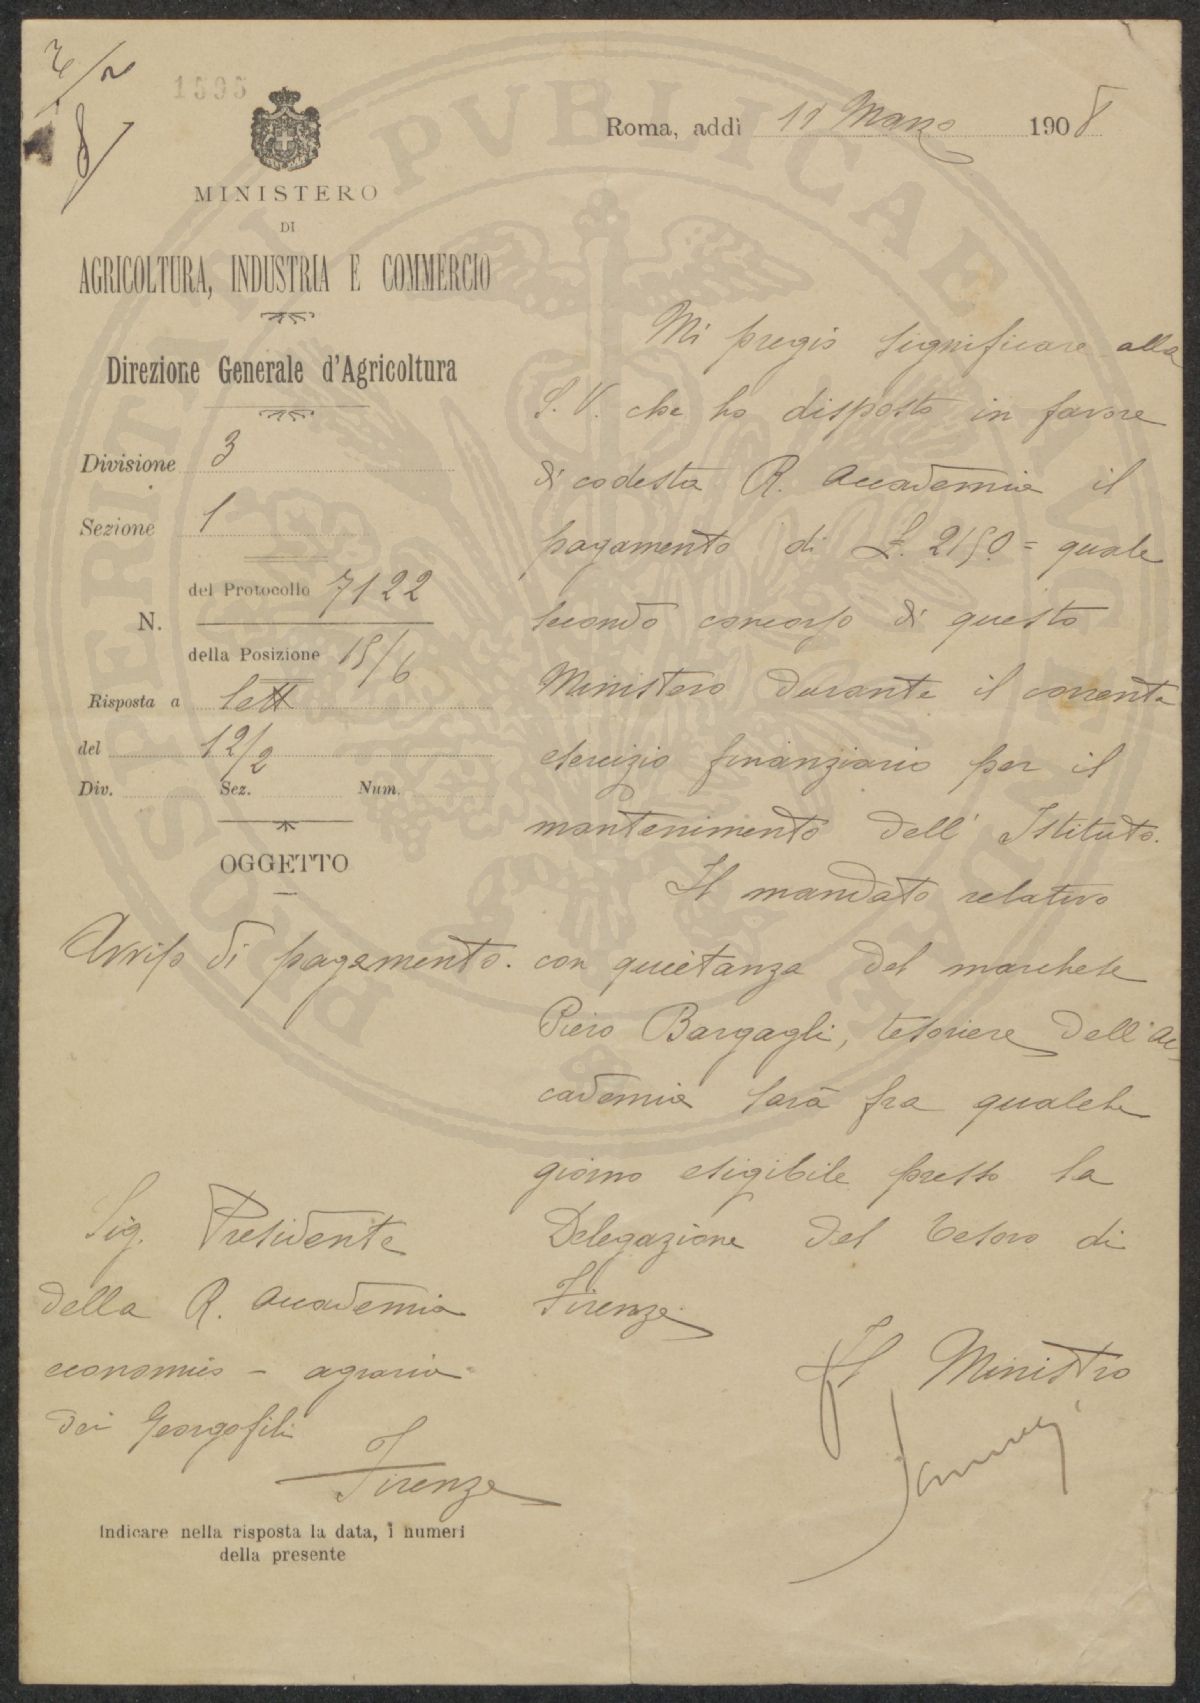 1595
MINISTERO
DI
AGRICOLTURA, INDUSTRIA E COMMERCIO
Direzione Generale d'Agricoltura
Divisione 3
Sezione 1
N. del Protocollo 7122
della Posizione 15/6
Risposta a lett
del 12/2
Div. Sez. Num.
OGGETTO
Avviso di pagamento.
Sig. Presidente
della R. Accademia
economico - agraria
dei Georgofili
Firenze
Indicare nella risposta la data, i numeri
della presente
Roma, addì Marzo 1908
Mi pregio significare alla
S. V. che ho disposto in favore
di codesta R. Accademia il
pagamento di £. 2150 = quale
secondo concorso di questo
Ministero durante il corrente
esercizio finanziario per il
mantenimento dell' Istituto.
Il mandato relativo
con quietanza del marchese
Piero Bargagli, tesoriere dell'Ac-
cademia sarà fra qualche
giorno esigibile presso la
Delegazione del Tesoro di
Firenze.
Il Ministro
PROSPERITATI PVBLICAE AVGENDAE